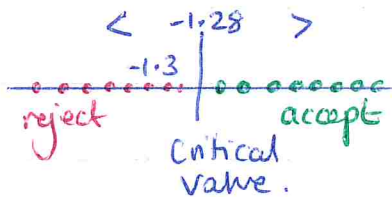 < -1.28 >
-1.3
reject accept
Critical
value.